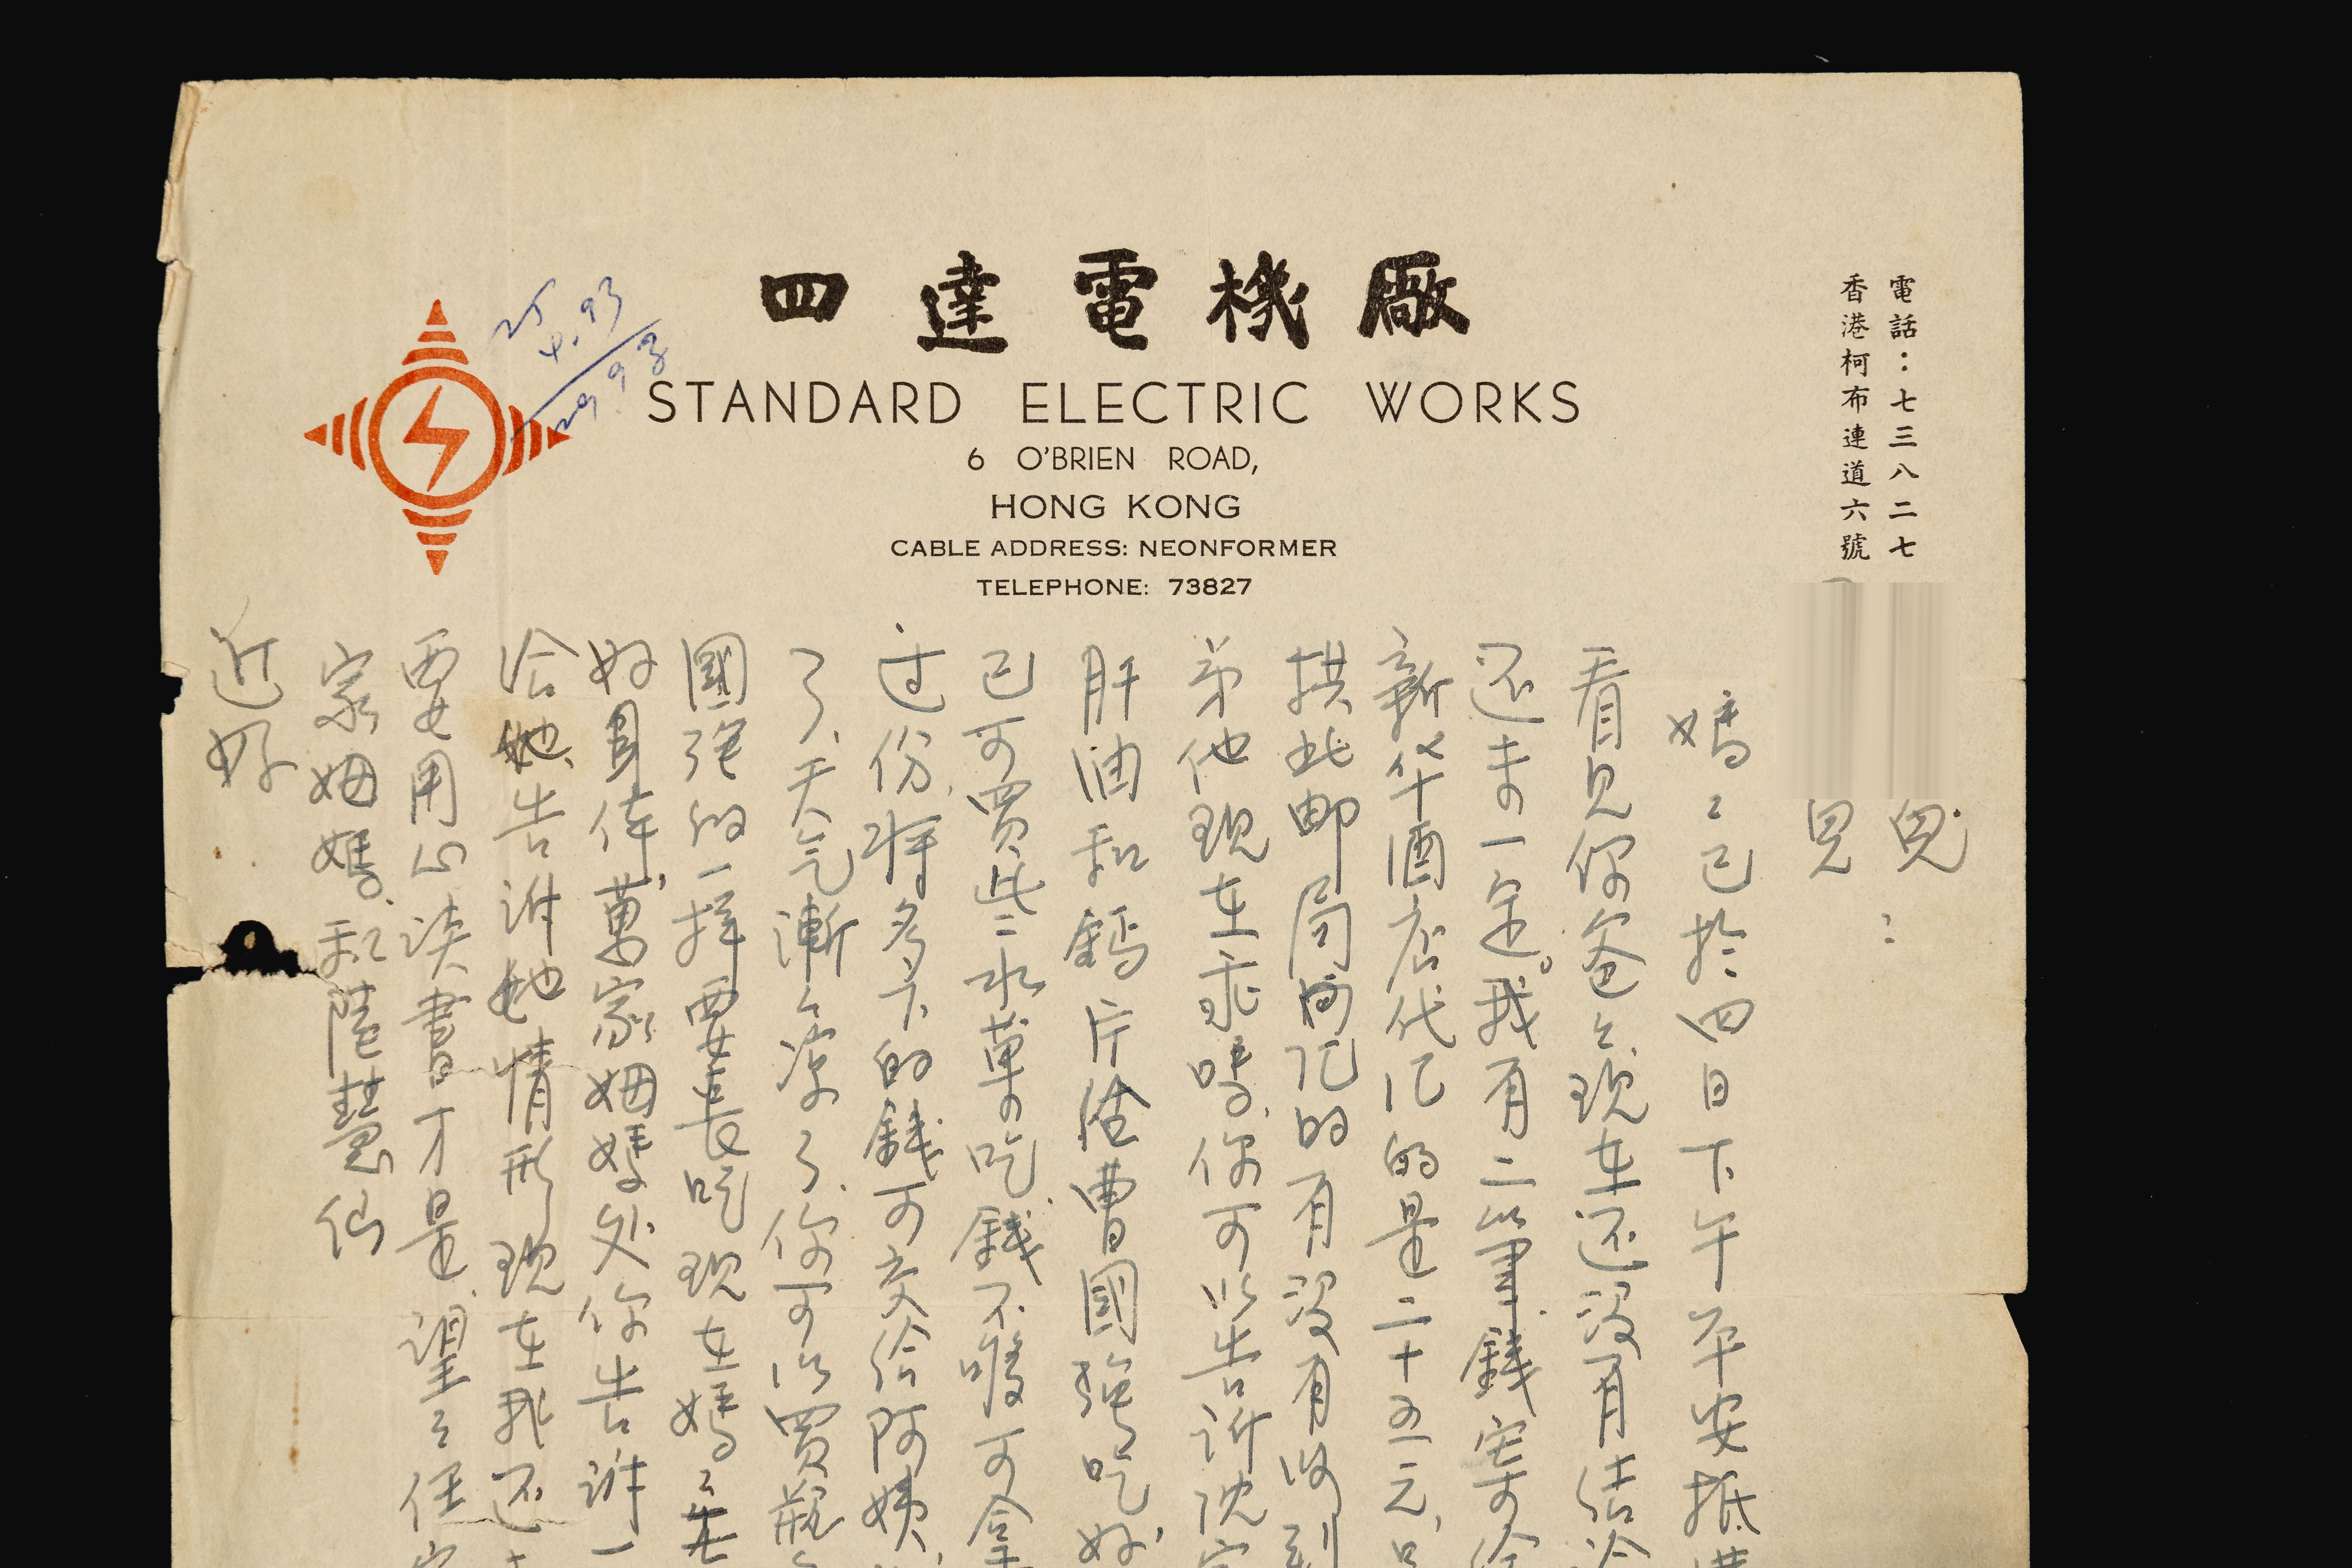 四達電機廠
STANDARD ELECTRIC WORKS
6 O'BRIEN ROAD,
HONG KONG
CABLE ADDRESS: NEONFORMER
TELEPHONE: 73827
電話：七三八二七
香港柯布連道六號
25
4.93
29.93
兒：
兒
媽々已於四日下午平安抵港
看見你爸々現在还没有
还未一定。我有二筆錢寄
新华酒店代汇的是二十四元
拱北邮局汇的有没有收到
弟他現在呼你可以告訴
肝油和鈣片给曹國強吃好
已可買些水菓吃錢不
过份將多下的錢可交给阿姨
了、天气漸々涼了、你可以買
國强的一樣要長吃現在媽々
好身体、萬家姻媽处你告訴一
给她、告訴她情形現在我还
要用心读書才是、望々
家姻媽、和陸慧仙
近好